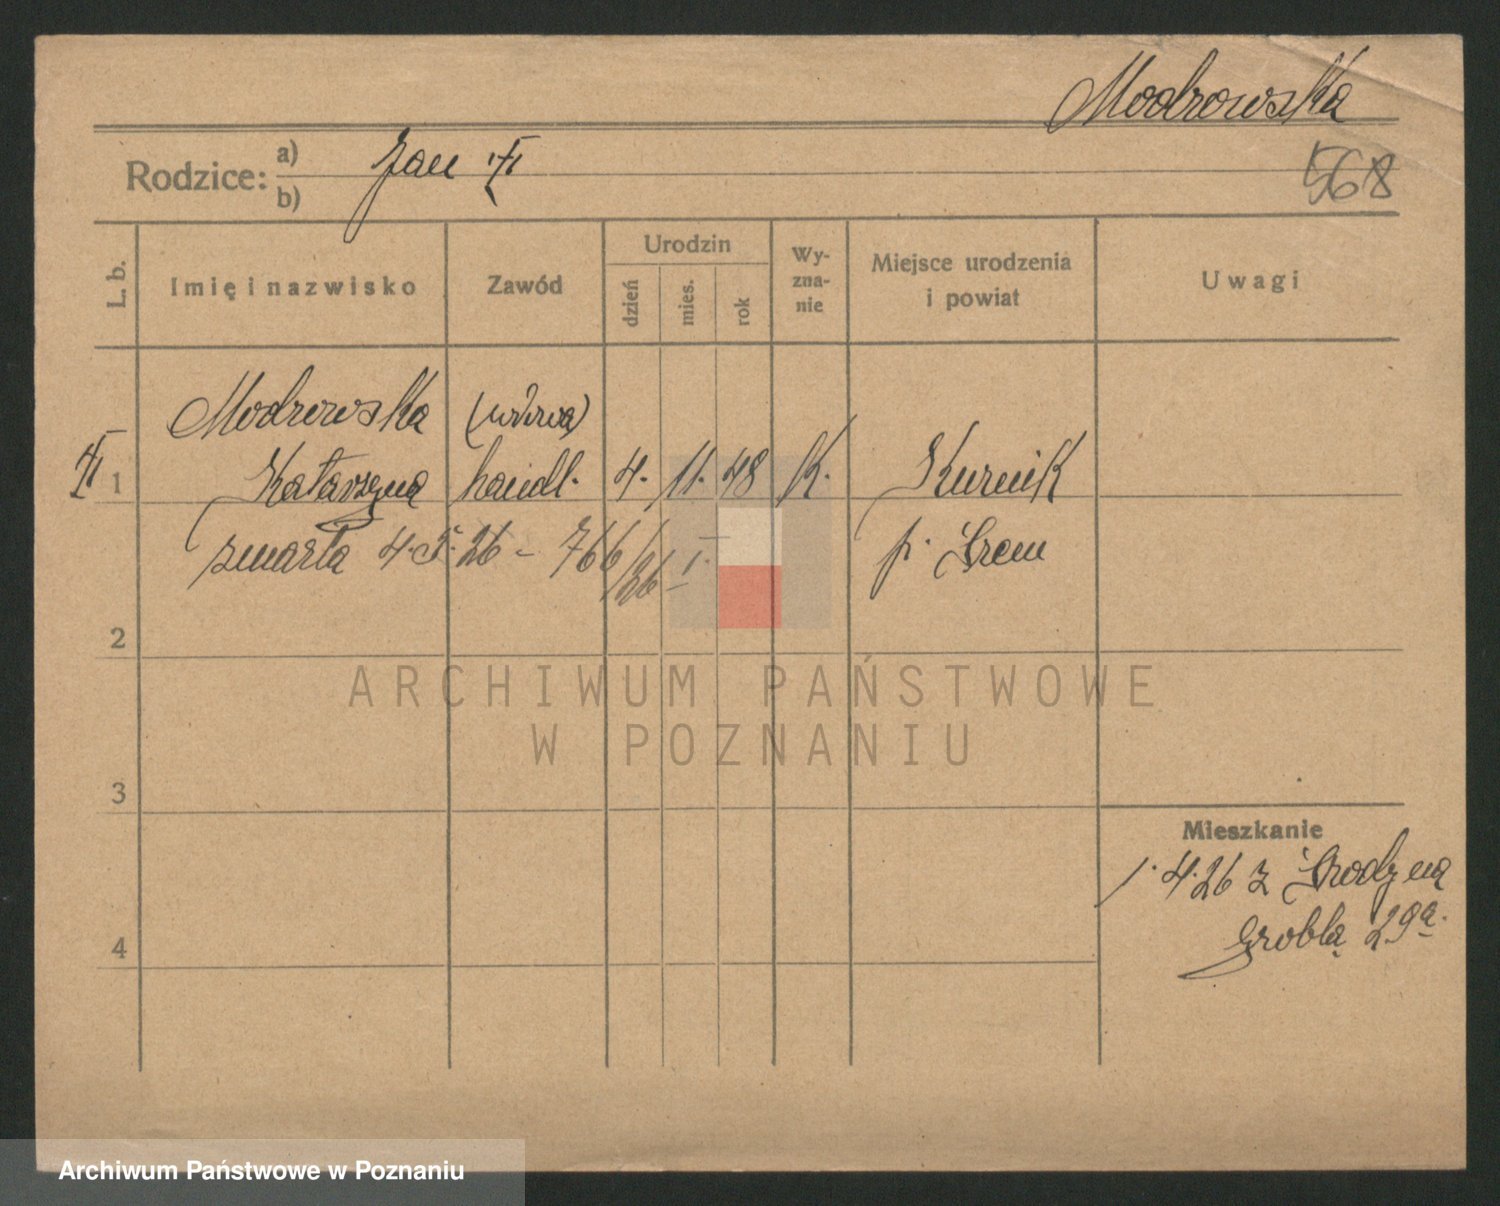 Modrowska
Rodzice: a) Jan
b)
568
L. b.
Imię i nazwisko
Zawód
Urodzin
dzień
mies.
rok
Wy-
zna-
nie
Miejsce urodzenia
i powiat
Uwagi
Modrowska (wdowa)
1 Katarzyna handl. 4. 11. 48 K. Kurnik
zmarła 4.5.26 - 766/26 I. p. Śrem
2
ARCHIWUM PAŃSTWOWE
W POZNANIU
3
Mieszkanie
1. 4.26 z
Groblą 29a.
4
Archiwum Państwowe w Poznaniu